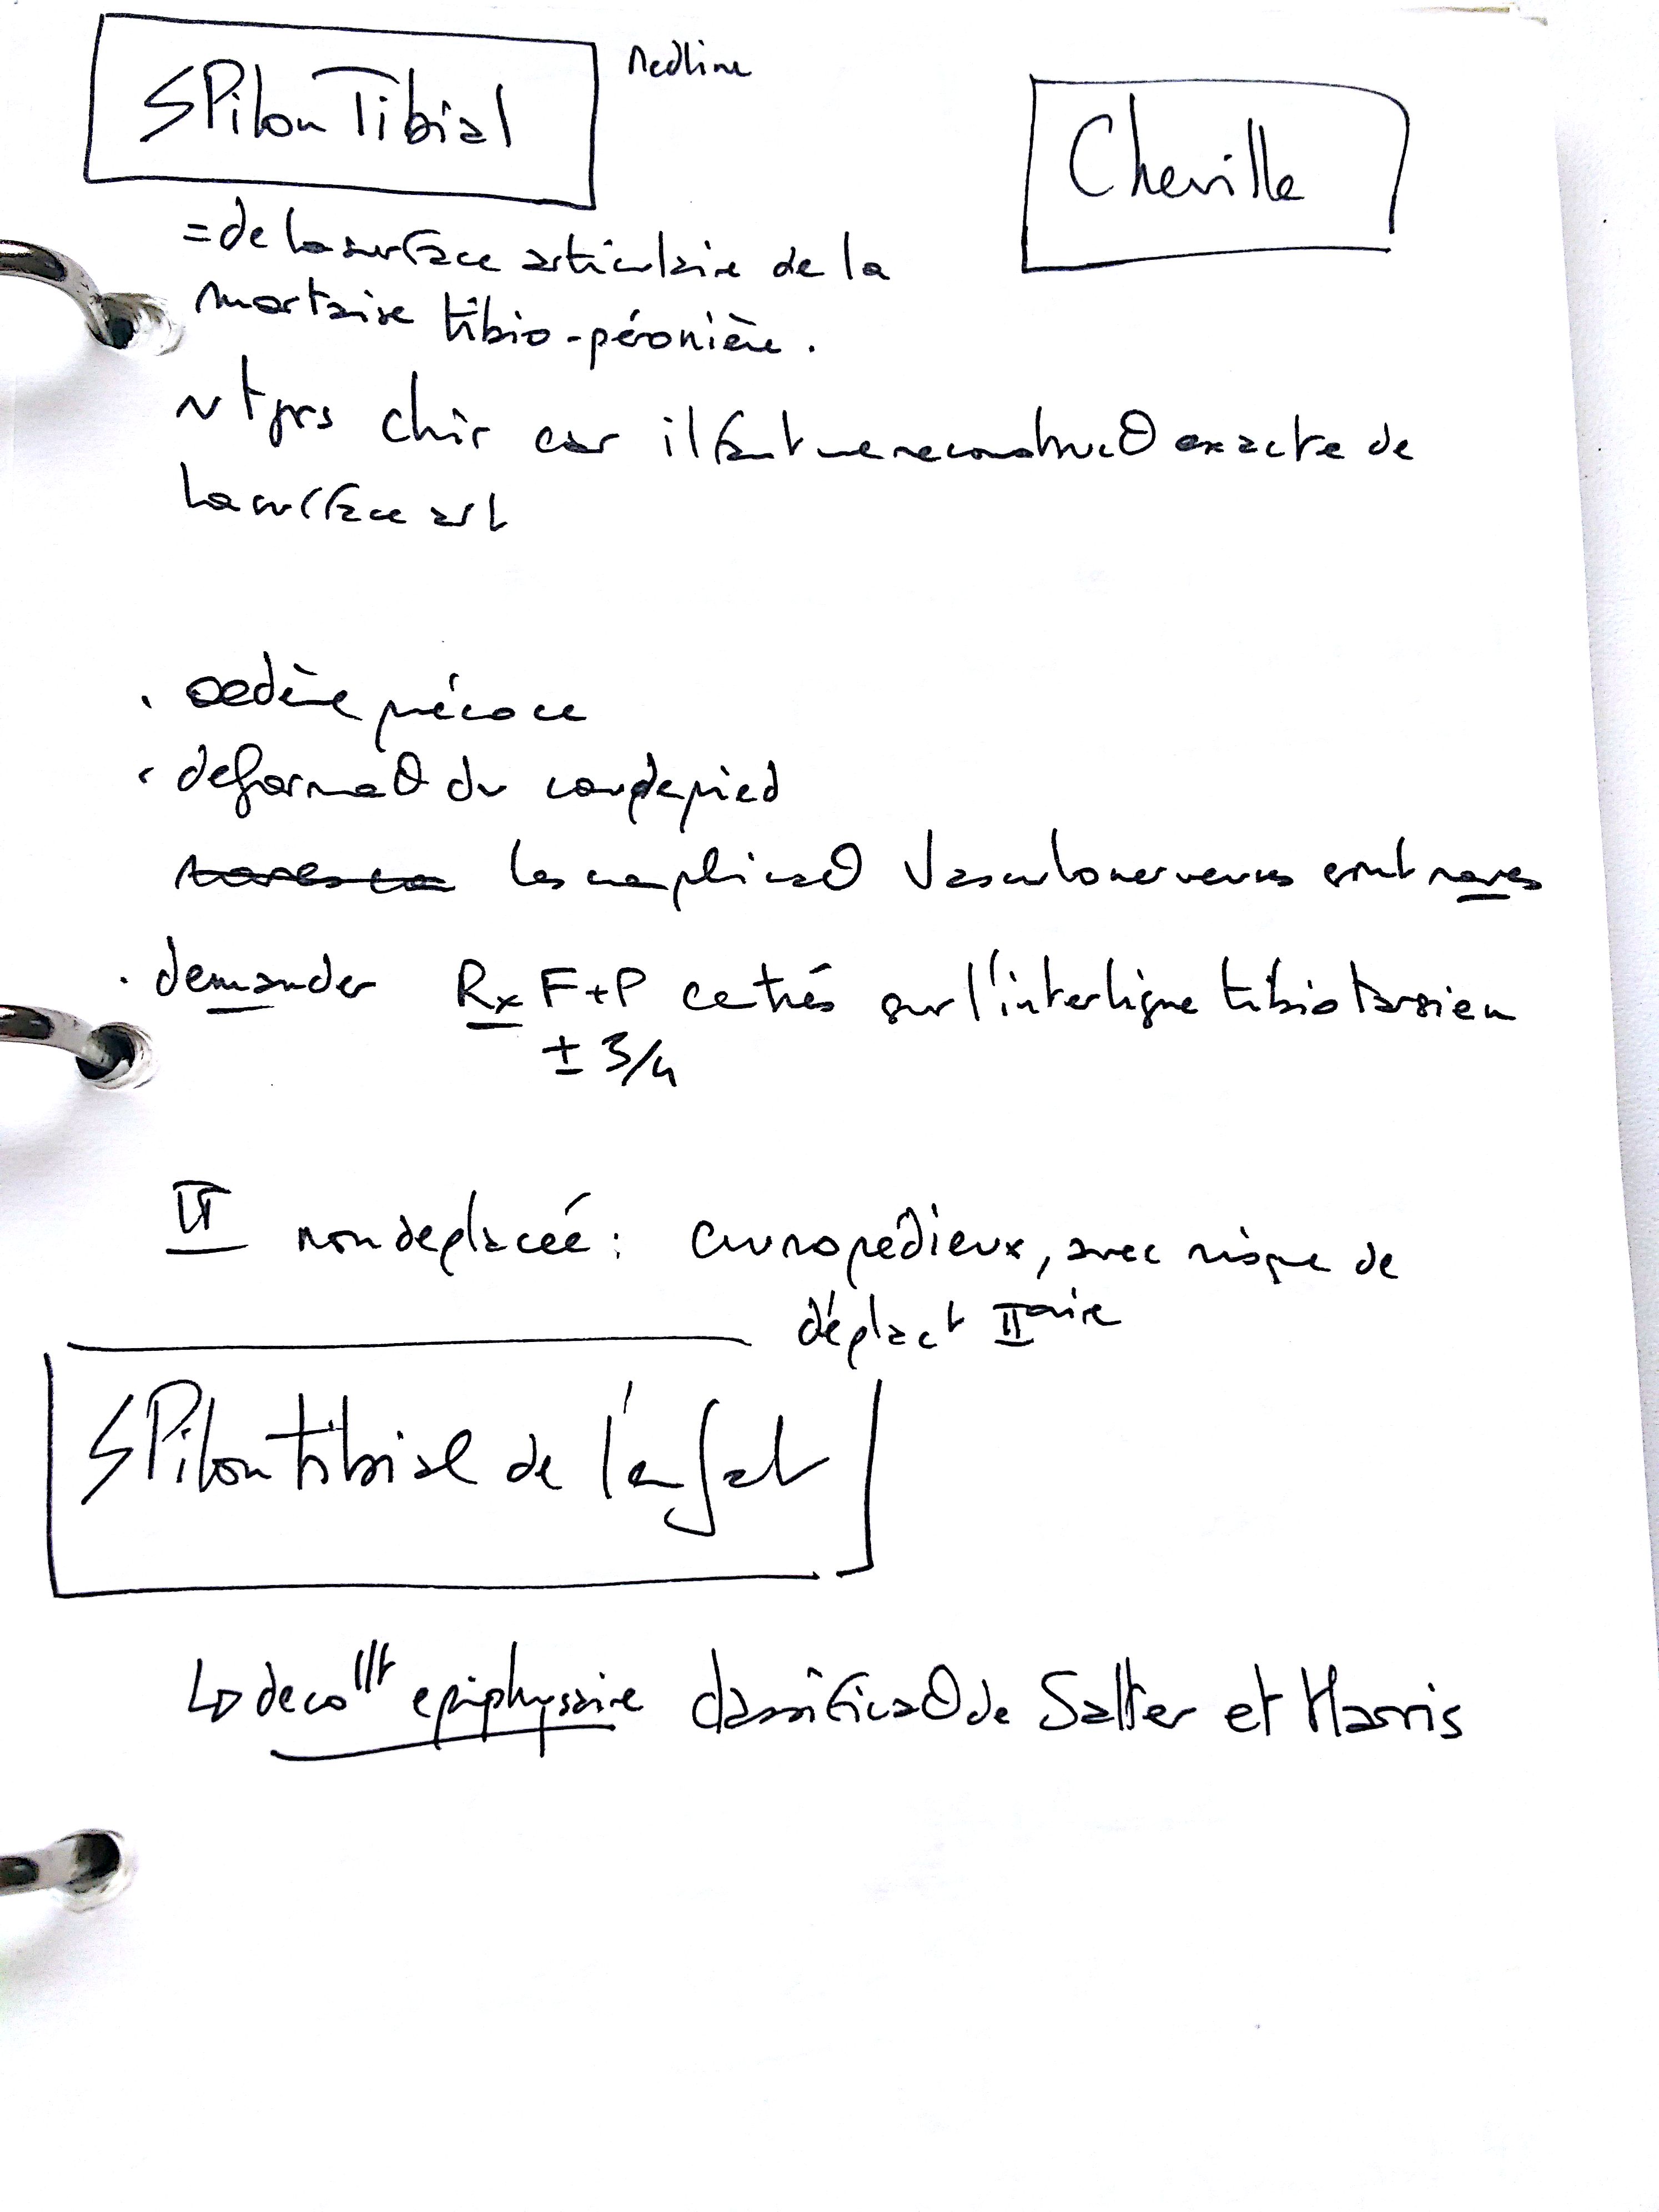 Pilon Tibial
Medline
Cheville
= de la surface articulaire de la
mortaise tibio-péronière.
~ tjrs chir car il faut une reconstrucθ exacte de
la surface art
. oedème précoce
. deformaθ du coup de pied
les complicaθ vasculonerveuses sont rares
. demander Rx F+P centrés sur l'interligne tibio tarsien
± 3/4
non deplaceé : cruropédieux, avec risque de
déplact IIaire
Pilon tibial de l'enfat
↳ decollt epiphysaire classificaθ de Salter et Harris